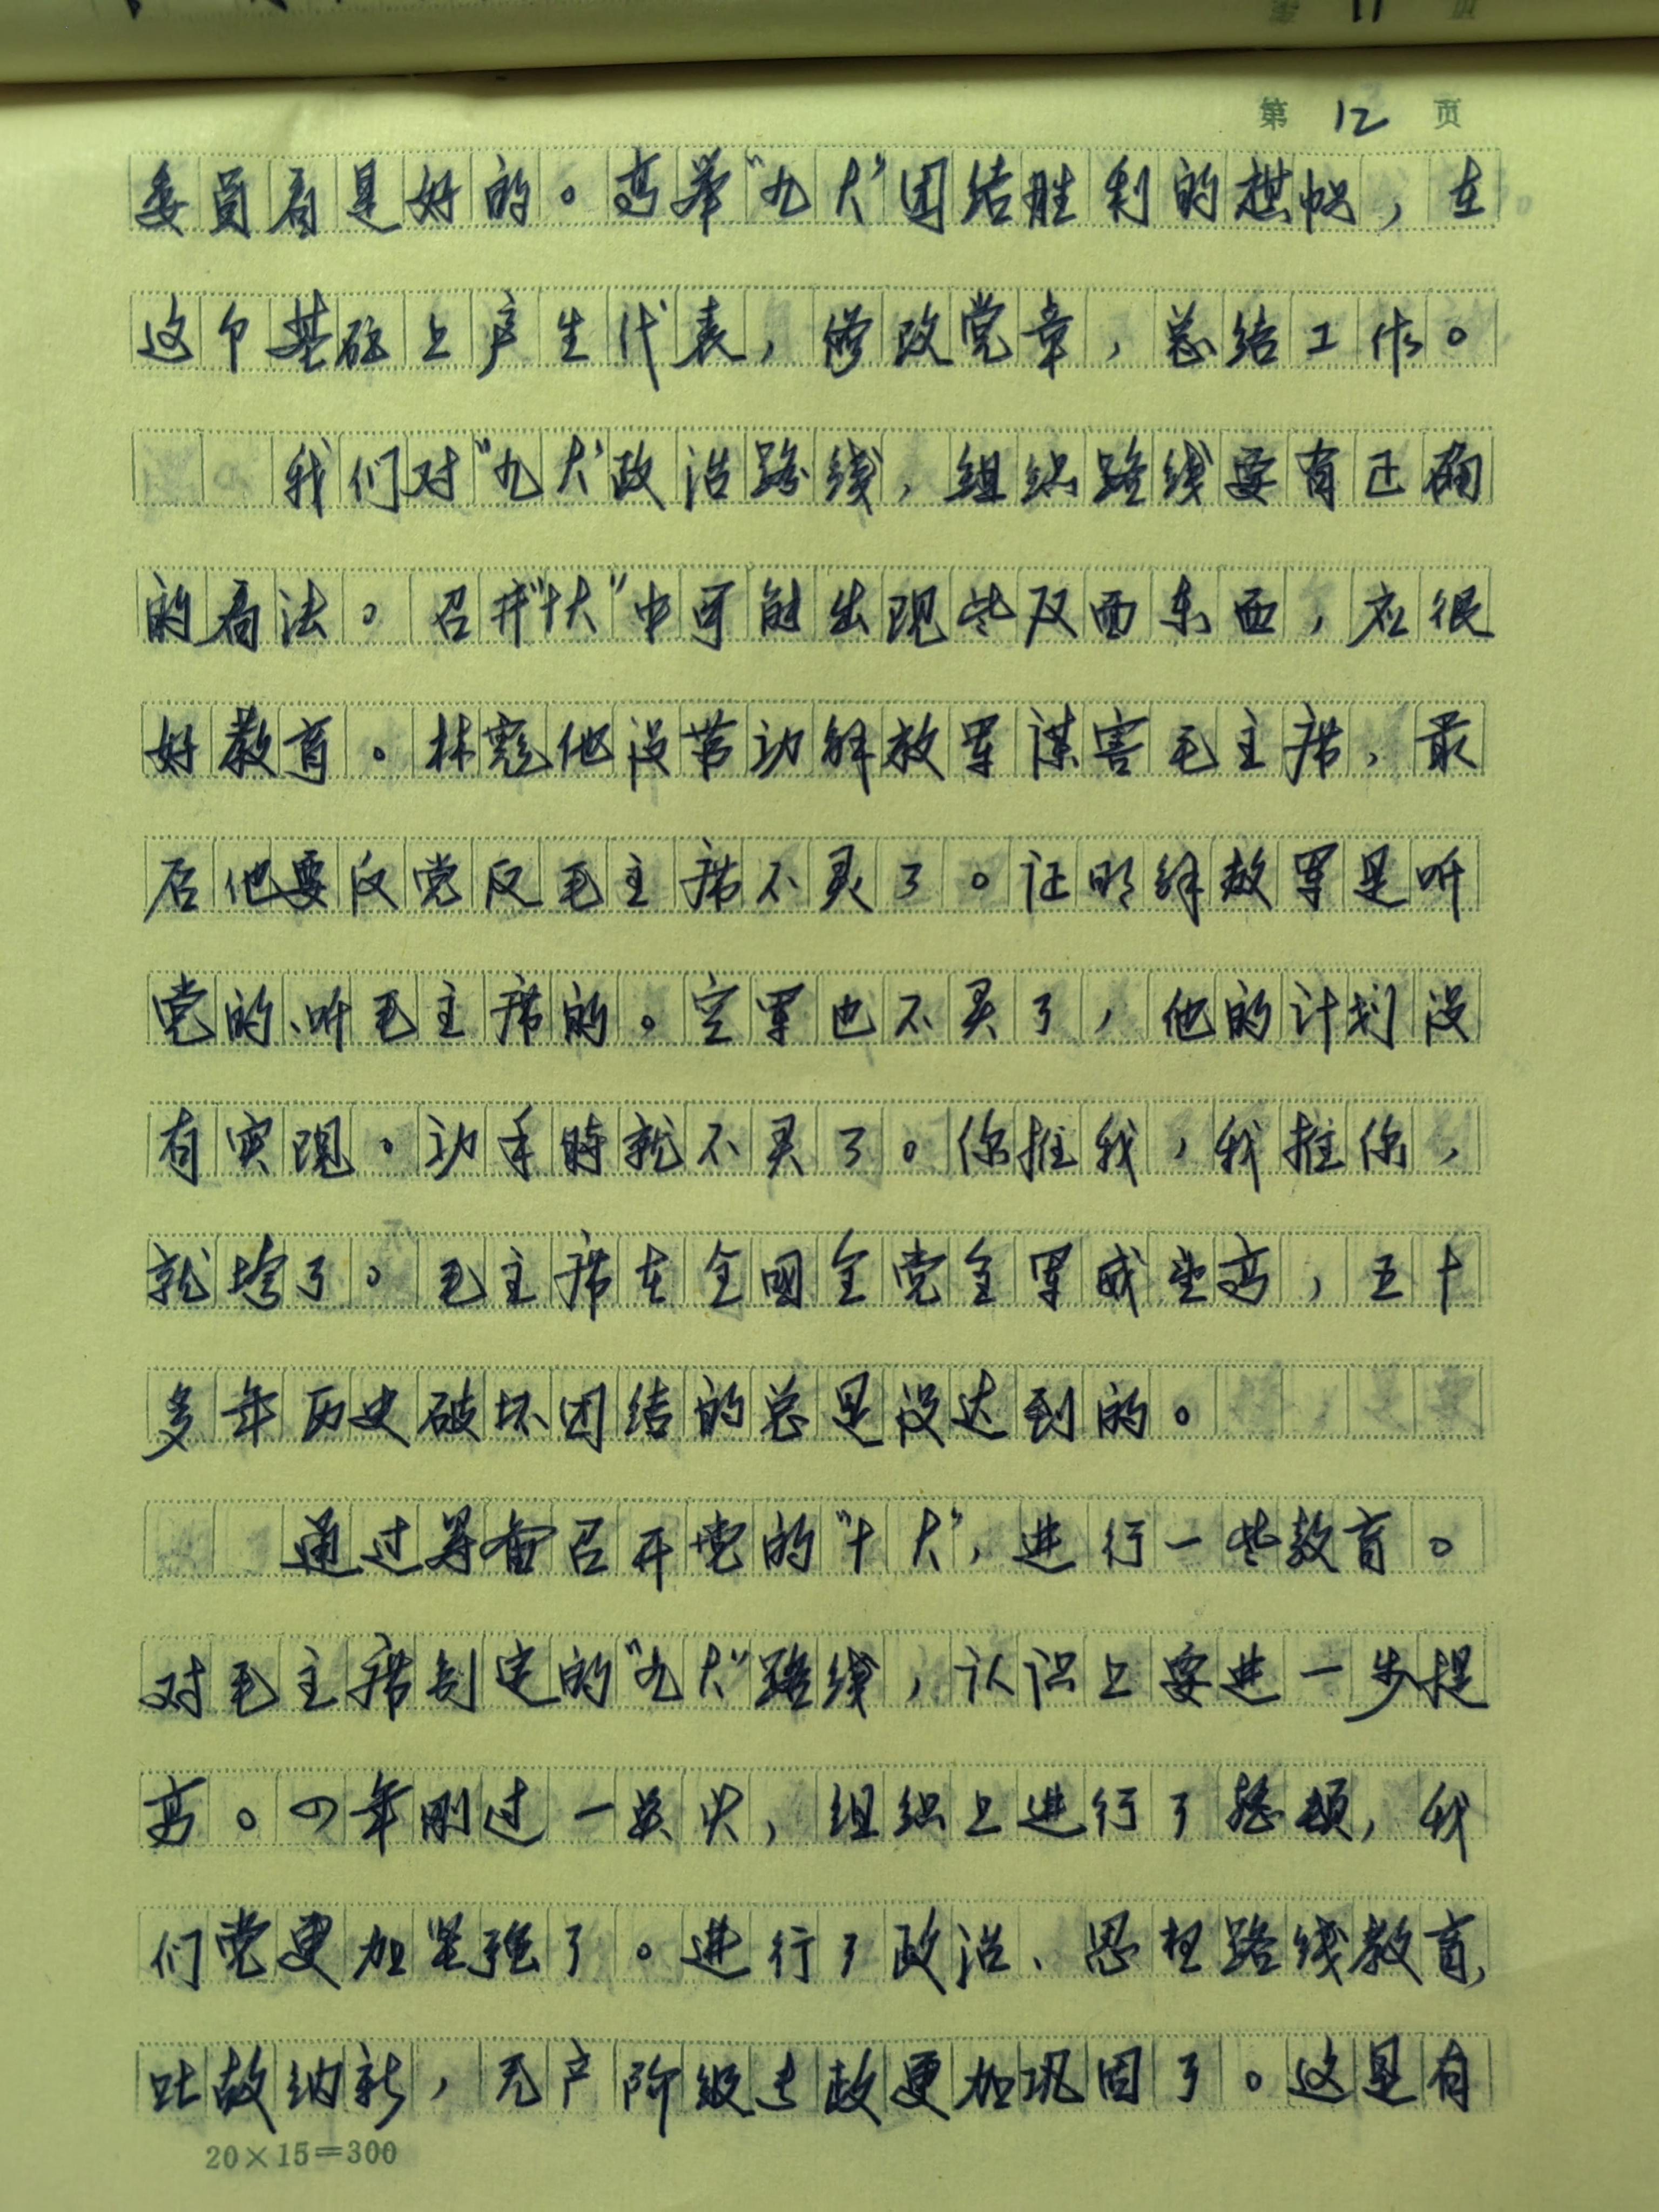 第 12 页
委员看是好的。高举“九大”团结胜利的旗帜，在
这个基础上产生代表，修改党章，总结工作。
我们对“九大”政治路线，组织路线要有正确
的看法。召开“十大”中可能出现些反面东西，应很
好教育。林彪他没带动解放军谋害毛主席，最
后他要反党反毛主席不灵了。证明解放军是听
党的、听毛主席的。空军也不灵了，他的计划没
有实现。动手时就不灵了。你推我，我推你，
就垮了。毛主席在全國全党全军威望高，五十
多年历史破坏团结的总是没达到的。
通过筹备召开党的“十大”，进行一些教育。
对毛主席制定的“九大”路线，认识上要进一步提
高。四年刚过一点火，组织上进行了整顿，我
们党更加坚强了。进行了政治、思想路线教育，
吐故纳新，无产阶级专政更加巩固了。这是有
20×15=300